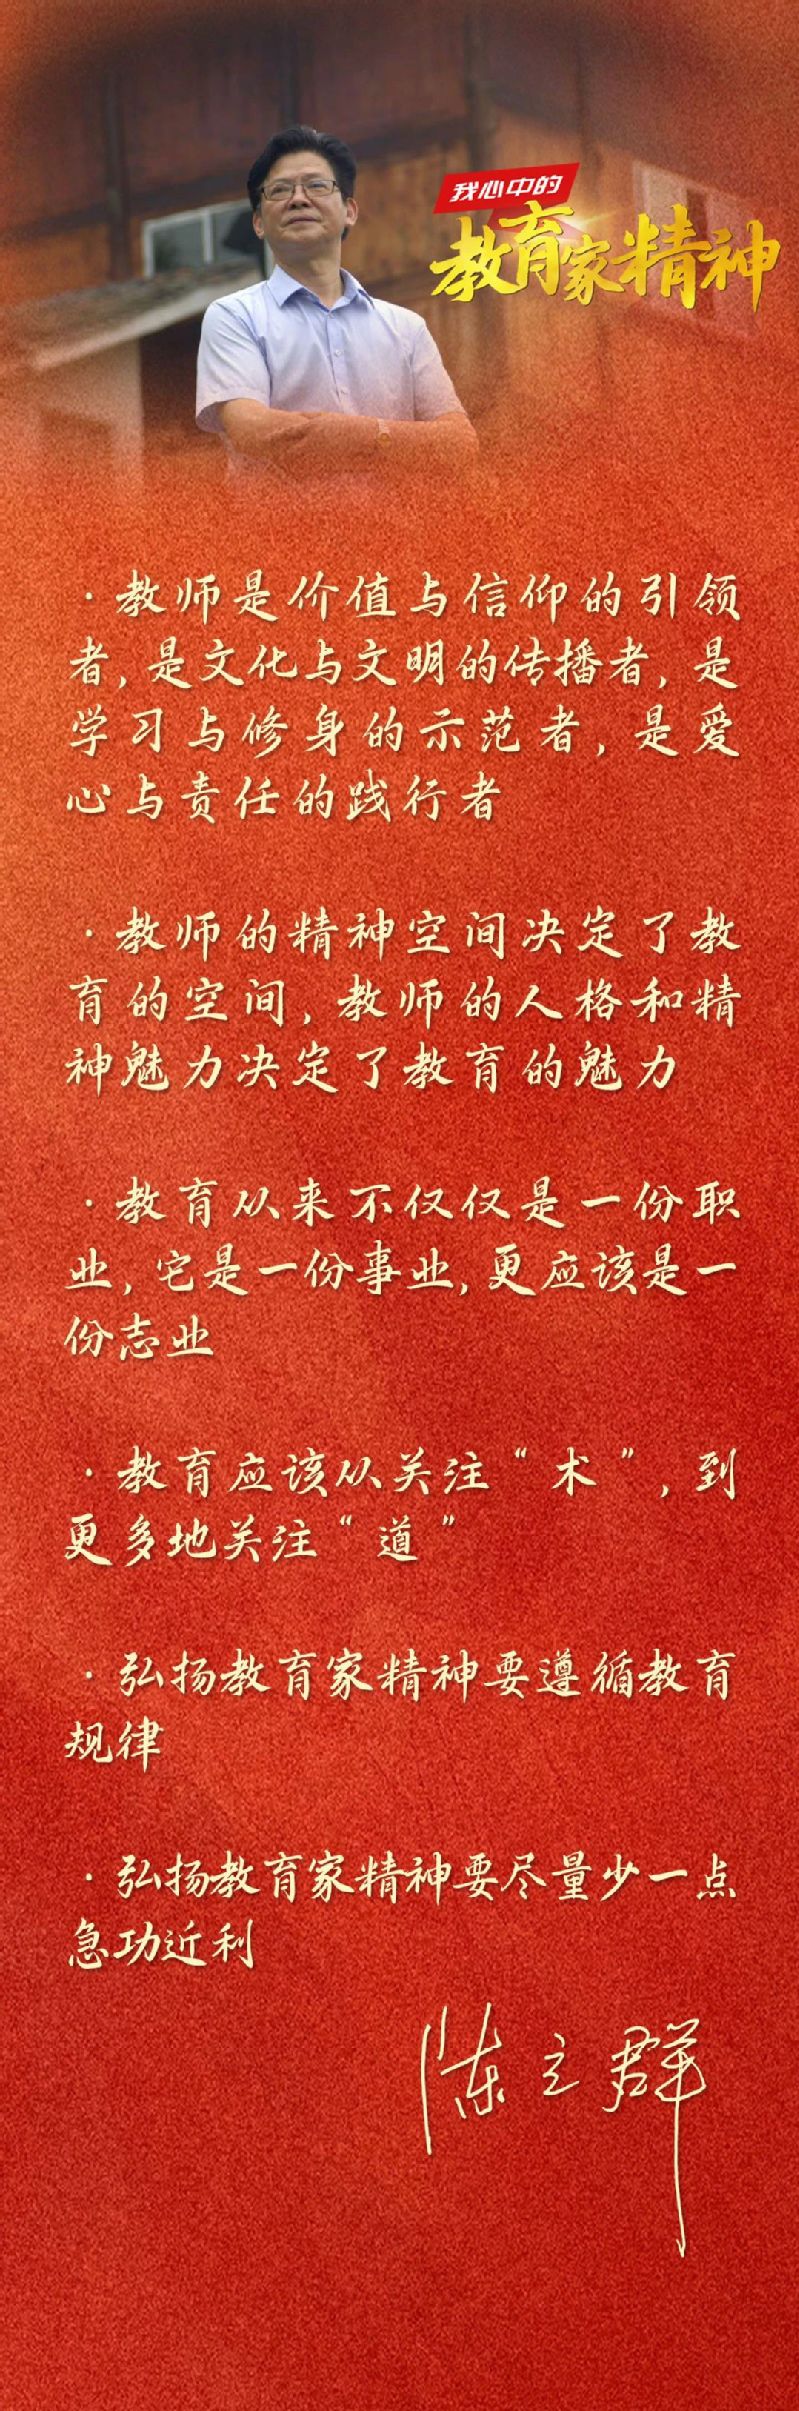 我心中的
教育家精神
·教师是价值与信仰的引领
者,是文化与文明的传播者,是
学习与修身的示范者,是爱
心与责任的践行者
·教师的精神空间决定了教
育的空间,教师的人格和精
神魅力决定了教育的魅力
·教育从来不仅仅是一份职
业,它是一份事业,更应该是一
份志业
·教育应该从关注“术”,到
更多地关注“道”
·弘扬教育家精神要遵循教育
规律
·弘扬教育家精神要尽量少一点
急功近利
陈立群